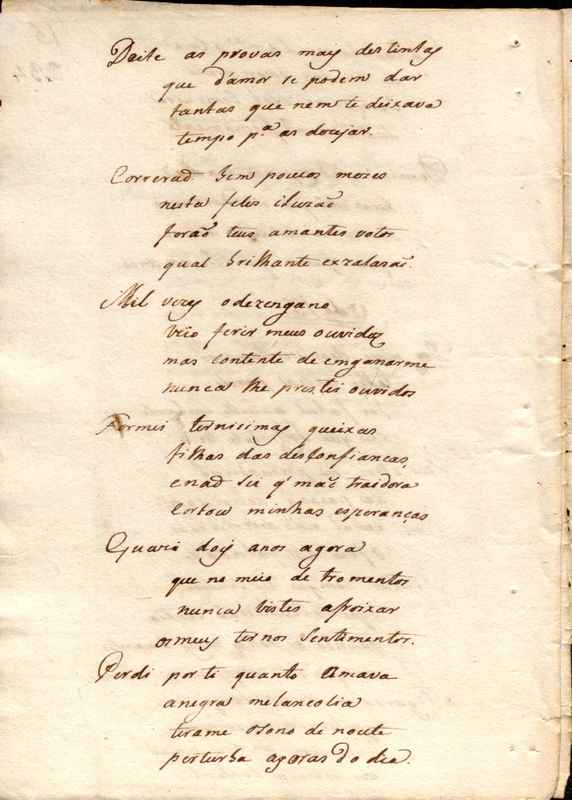 Deite as provas mays destintas
que d'amor se podem dar
tantas que nem te deixava
tempo p.ª as dezejar.
Correraõ bem poucos mezes
nesta felis iluzaõ
foraõ teus amantes votos
qual brilhante exzalasaõ.
Mil vezes odezengano
veio ferir meus ouvidos
mas contente de emganarme
nunca lhe prestei ouvidos
Formei ternisimas queixas
filhas das desconfianças,
enaõ sei q' maõ traidora
Cortou minhas esperanças
Quazi doys anos agora
que no meio de tromentos
nunca vistes afroixar
osmeus ternos sentimentos.
Perdi por ti quanto amava
anegra melancolia
tirame osono de noute
perturba agoras do dia.